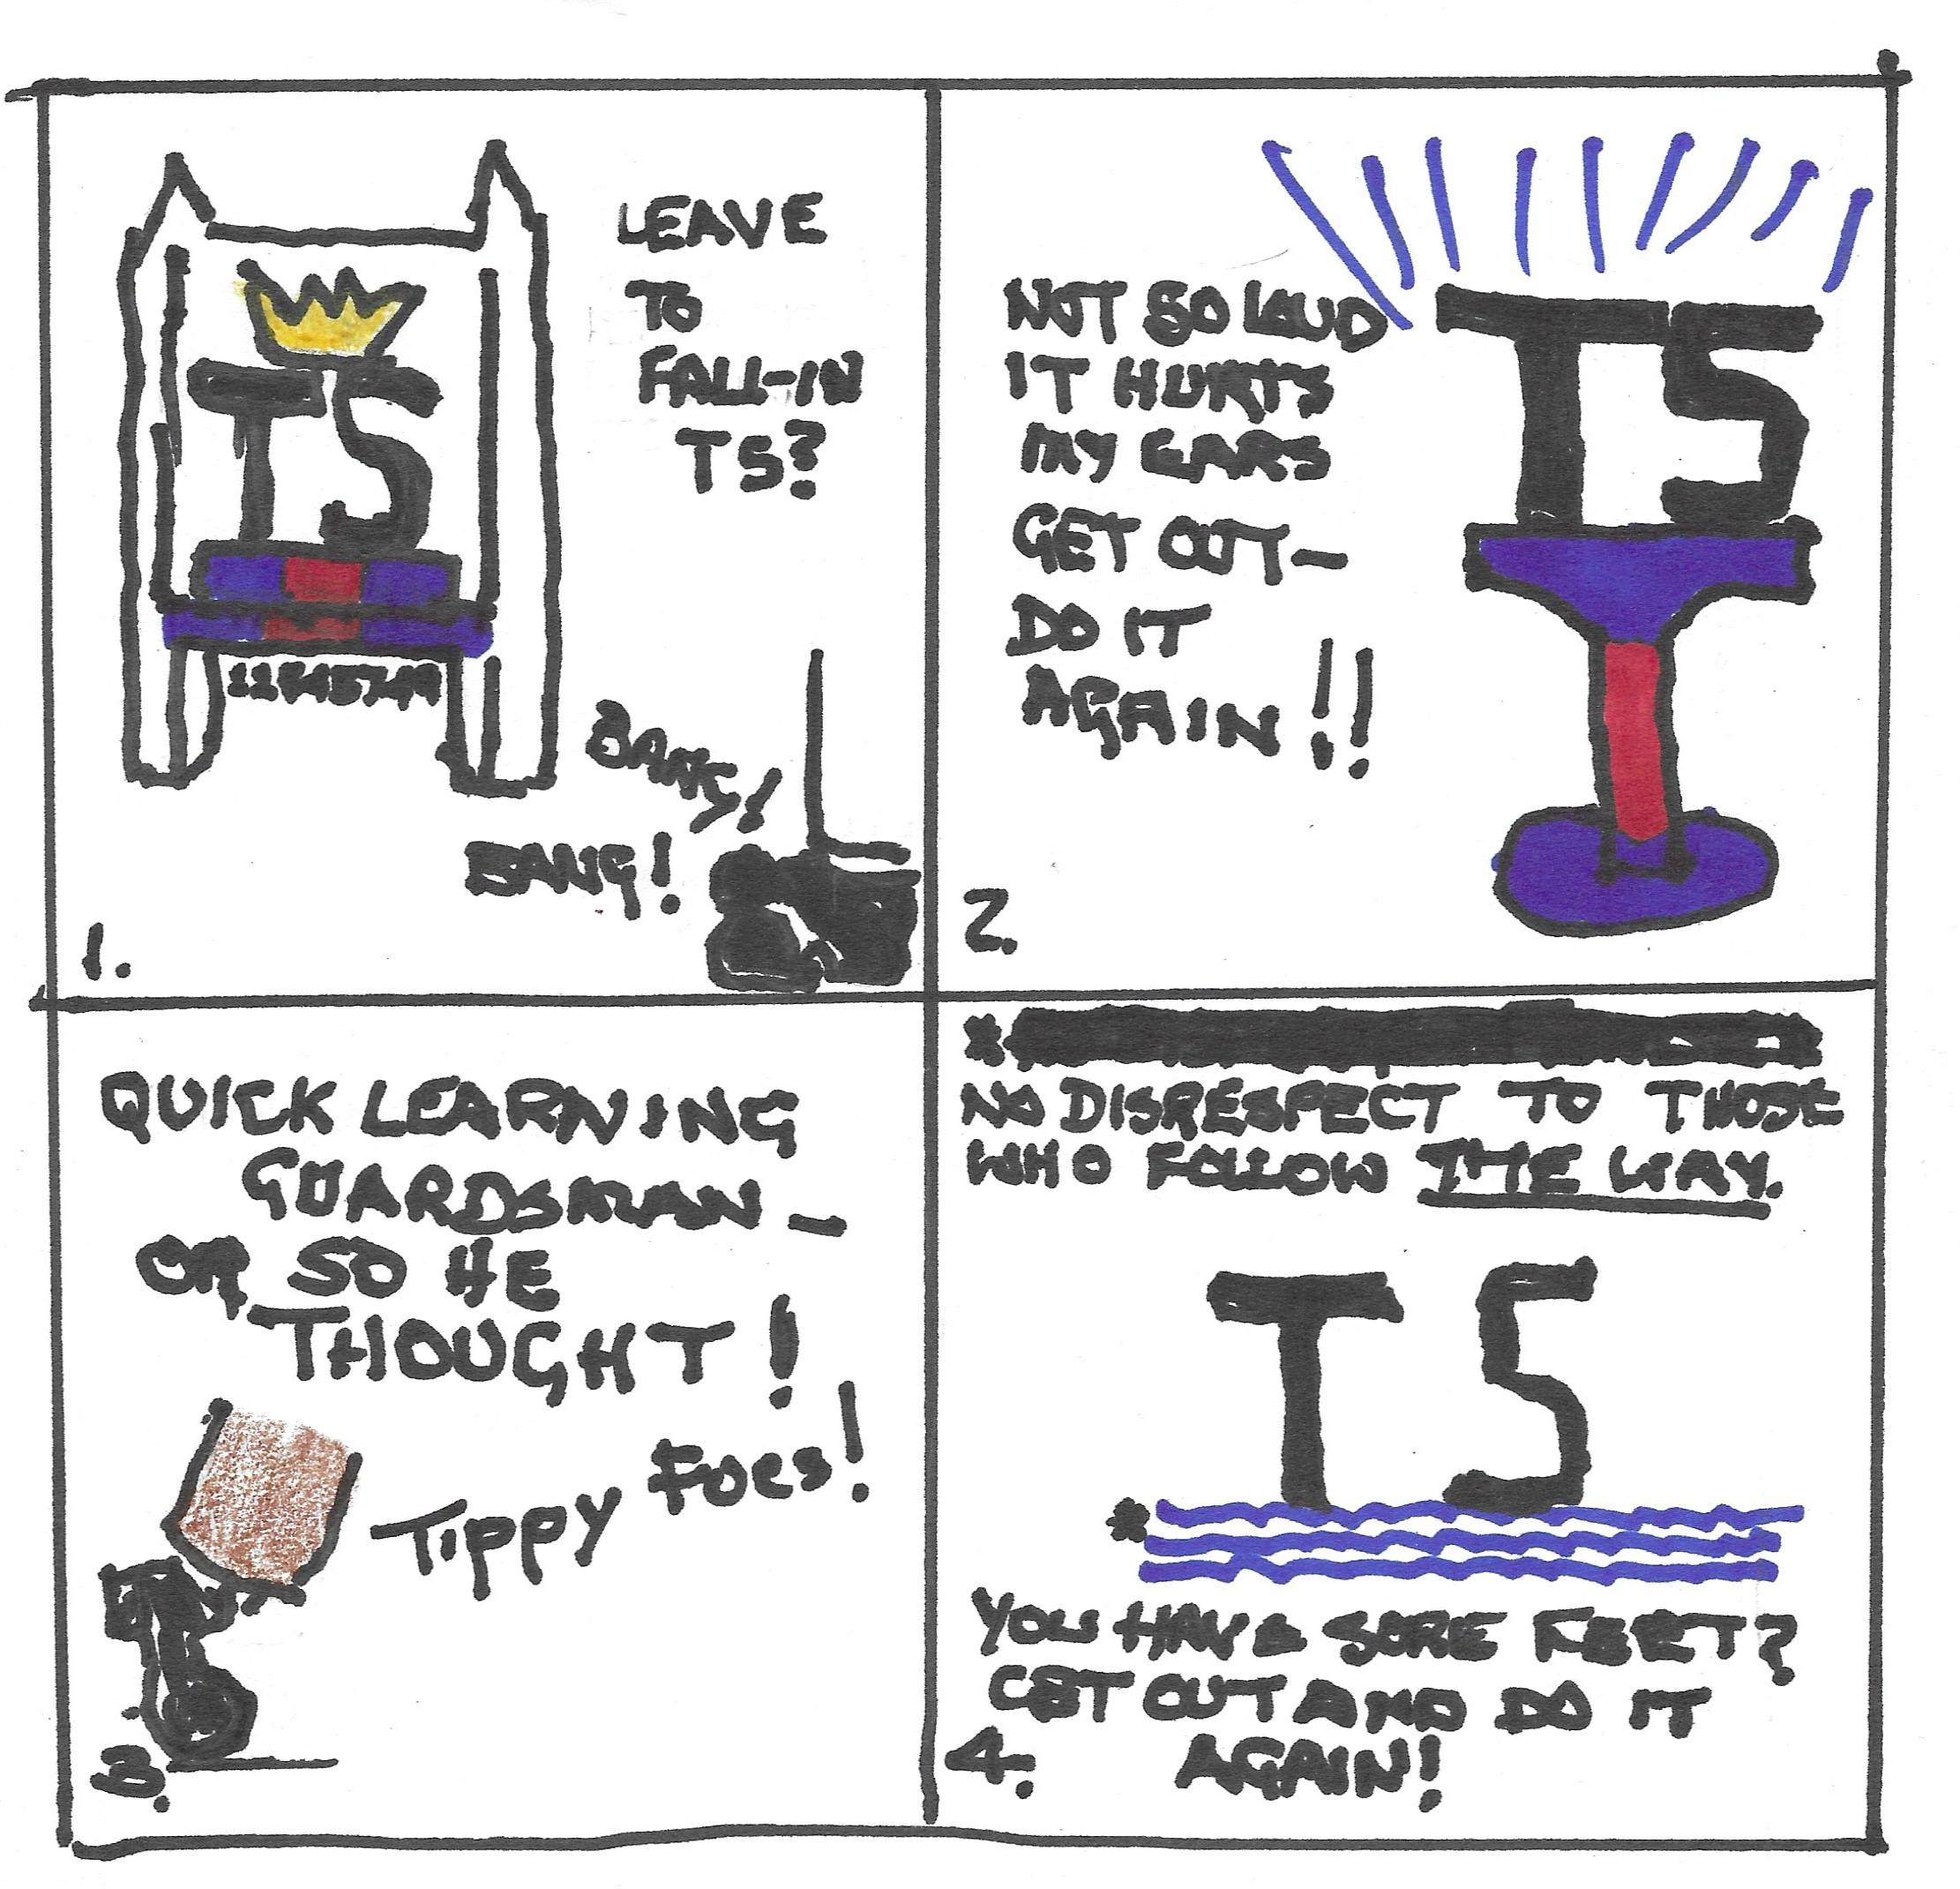 TS
LEAVE
TO
FALL-IN
TS?
BANG!
BANG!
1.
TS
NOT SO LOUD
IT HURTS
MY EARS
GET OUT—
DO IT
AGAIN!!
2.
QUICK LEARNING
GUARDSMAN —
OR SO HE
THOUGHT!
TIPPY TOES!
3.
*
NO DISRESPECT TO THOSE
WHO FOLLOW THE WAY.
TS
*
YOU HAVE SORE FEET?
GET OUT AND DO IT
AGAIN!
4.